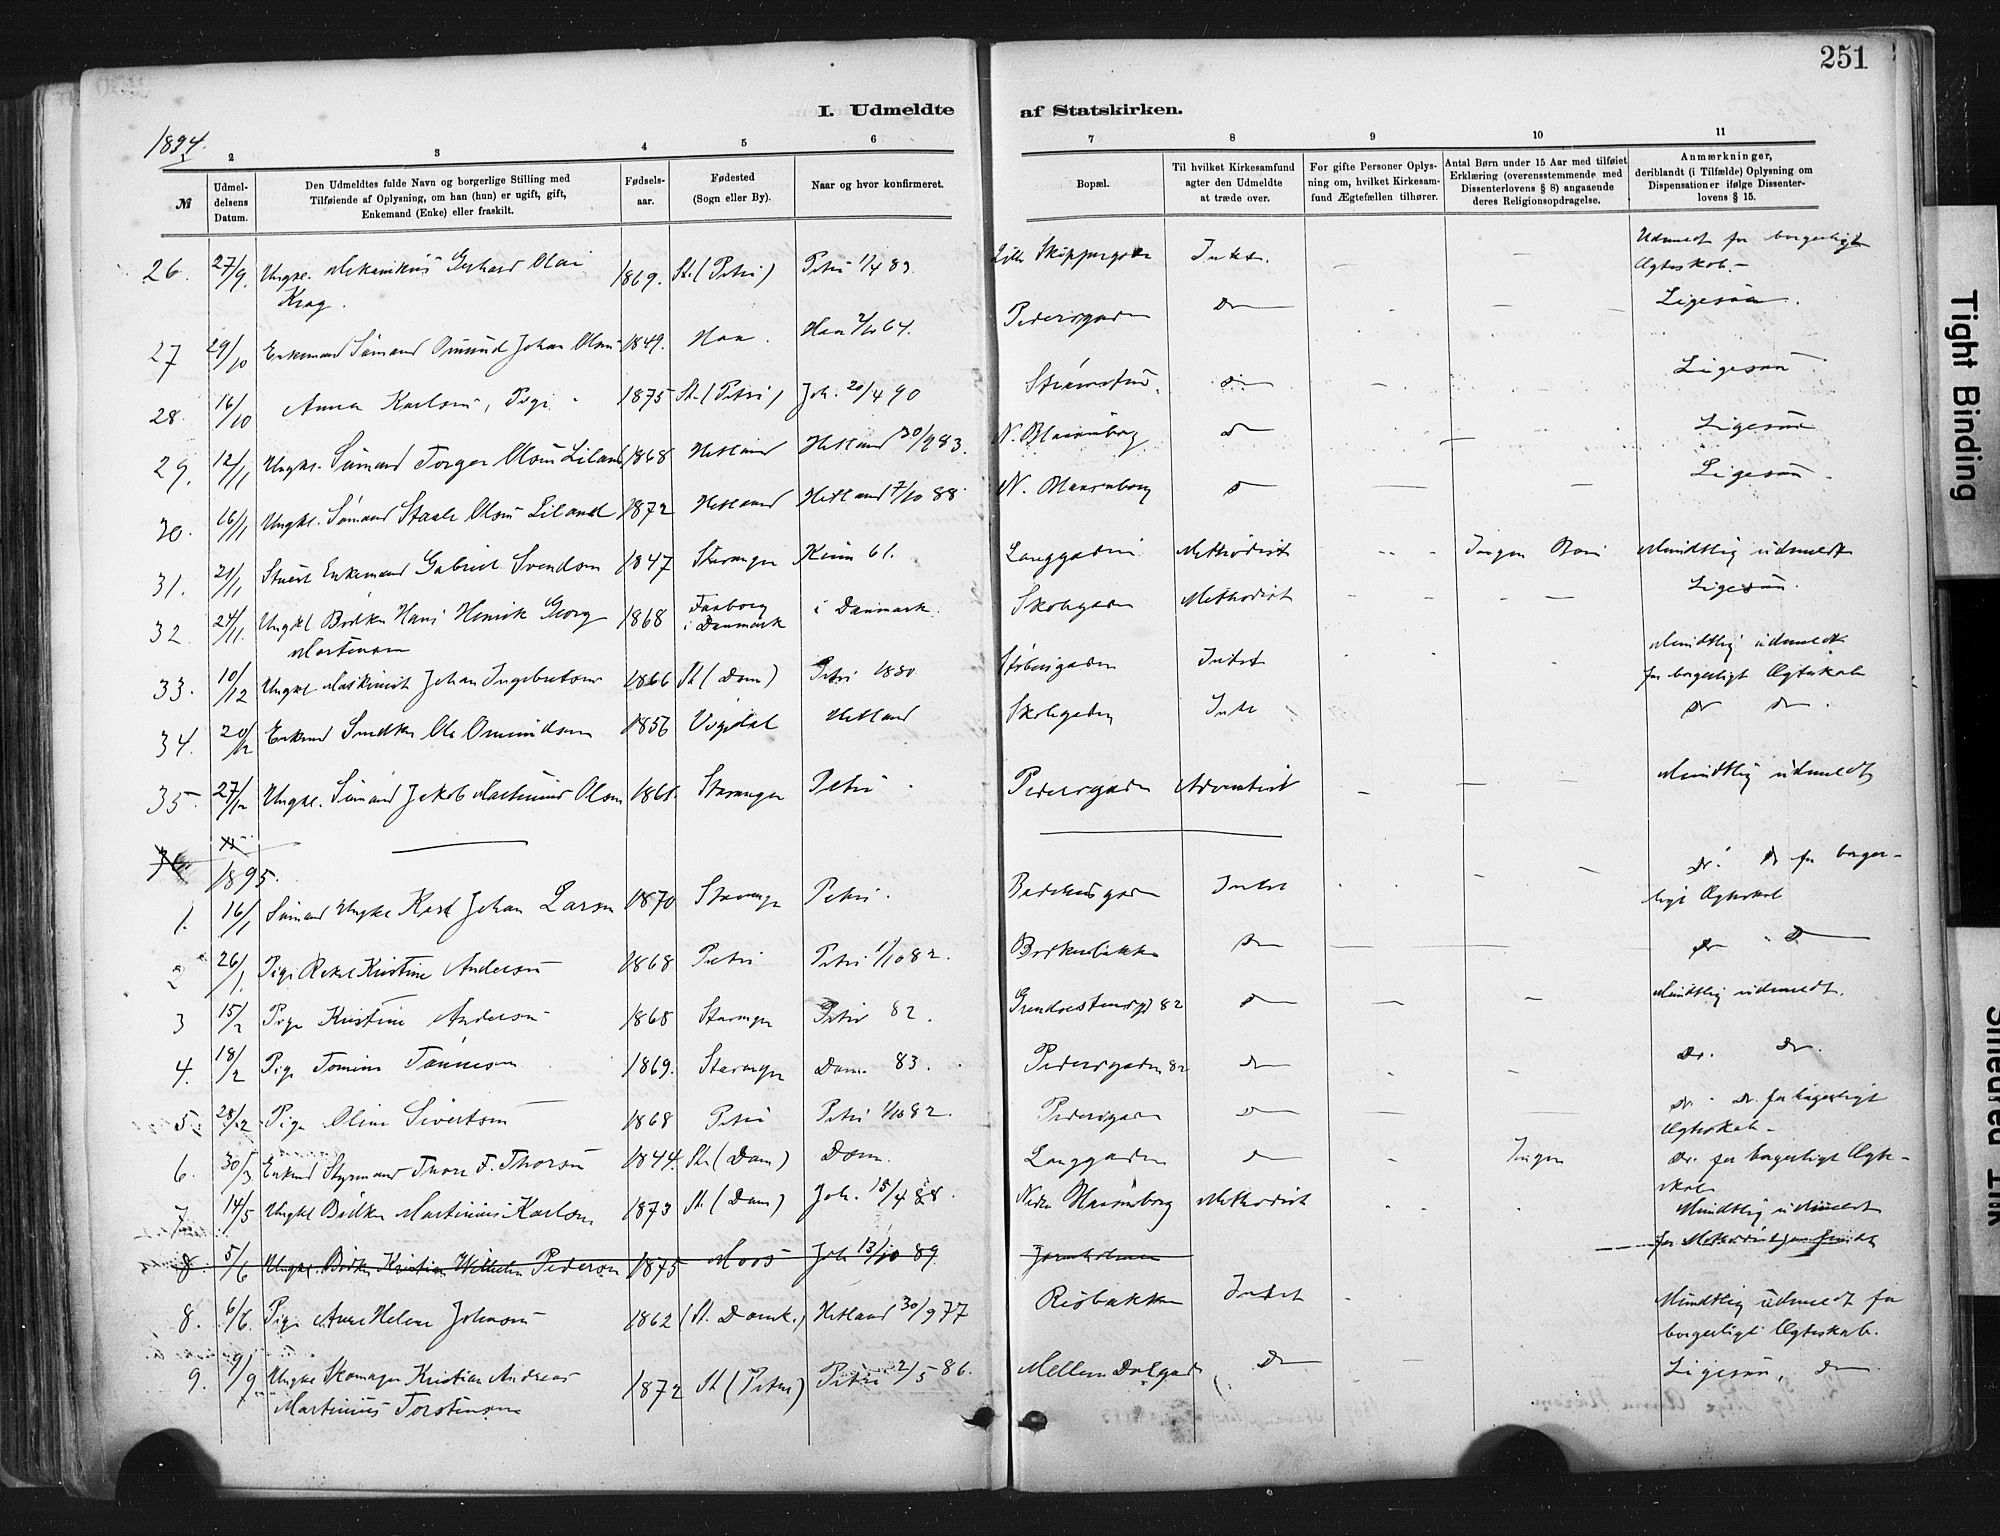 251
I. Udmeldte af Statskirken.
1894.
1 2 3 4 5 6 7 8 9 10 11
№
Udmel-
delsens
Datum.
Den Udmeldtes fulde Navn og borgerlige Stilling med
Tilføiende af Oplysning, om han (hun) er ugift, gift,
Enkemand (Enke) eller fraskilt.
Fødsels-
aar.
Fødested
(Sogn eller By).
Naar og hvor konfirmeret.
Bopæl.
Til hvilket Kirkesamfund
agter den Udmeldte
at træde over.
For gifte Personer Oplys-
ning om, hvilket Kirkesam-
fund Ægtefællen tilhører.
Antal Børn under 15 Aar med tilføiet
Erklæring (overensstemmende med
Dissenterlovens § 8) angaaende
deres Religionsopdragelse.
Anmærkninger,
deriblandt (i Tilfælde) Oplysning om
Dispensationer ifølge Dissenter-
lovens § 15.
26. 27/9. Ungk. Mekanikus Gerhard Olai 1869. St. (Petri) Petri 1/4 83 Lille Skippergaden Intet. Udmeldt for borgerligt
Krag. Ægteskab.-
27 29/10 Enkemand Sømand Omund Johan Olsen 1849. Haa. Haa 2/10 64. Pedersgaden Do Ligesaa.
28. 16/10 Anna Karlsen, Pige 1875 St. (Petri) Joh. 20/4 90 Strømsten do Ligesaa
29. 12/11 Ungk. Sømand Torger Olsen Liland 1868 Hetland Hetland 30/9 83. N. Blaasenborg do Ligesaa
30. 16/11 Ungk. Sømand Staale Olsen Liland 1872 Hetland Hetland 7/10 88 N. Blaasenborg do Ligesaa
31. 21/11 Stuert Enkemand Gabriel Svendsen 1847 Stavanger Kinn 61. Langgaden Methodist Ingen Børn Mundtlig udmeldt
32. 24/11. Ungkl Bødker Hans Henrik Georg 1868 Faaborg i Danmark i Danmark. Skolegaden Methodist Ligesaa.
Mortensen
33. 10/12 Ungkl Maskinist Johan Ingebretsen 1866 St. (Dom) Petri 1880 Støberigaden Intet Mundtlig udmeldt
for borgerligt Ægteskab
34. 20/12 Enkemd Snedker Ole Omundsen 1856 Hetland Skolegaden Intet do do.
35. 27/12 Ungk. Sømand Jakob Martinius Olsen 1868. Stavanger Petri Pedersgaden Adventist Mundtlig udmeldt
36
1895.
1. 16/1 Sømand Ungkl Karl Johan Larsen 1870 Stavanger Petri. Badehusgaden Intet do. do for borger-
ligt Ægteskab
2 26/1. Pige Rakel Kristine Andersen 1868 Petri Petri 1/10 82. Bødkerbakken do do do
3 15/2 Pige Kristine Andersen 1868 Stavanger Petri 82. 82 do Mundtlig udmeldt.
4. 18/2 Pige Tomine Tønnesen 1869. Stavanger Dom. 83. Pedersgaden 82 do do. do.
5 28/2 Pige Oline Sivertsen 1868 Petri Petri 1/10 82. Pedersgaden do do. do. for borgerligt
Ægteskab-
6. 30/3 Enkemd Styrmand Thore F. Thorsen 1844. St. (Dom) Dom. Langgaden do Ingen do. for borgerligt Ægte-
skab
7 14/5 Ungkl Bødker Martinius Karlsen 1873 St. (Dom) Joh. 15/4 88. Nedre Blaasenborg Methodist Mundtlig udmeldt
8. 5/6 Ungk. Bødker Kristian Wilhelm Pedersen 1875 Moss Joh 13/10 89. Jorenholmen for Methodist
8. 6/6. Pige Ane Helene Johnsen 1862 (St. Domk.) Hetland 30/9 77 Risbakken Intet Mundtlig udmeldt for
borgerligt Ægteskab.
9. 9/9 Ungkl Skomager Kristian Andreas 1872 St. (Petri) Petri 2/5 86. Mellem Dalgade Do Ligesaa, do
Martinius Torstensen
Tight Binding